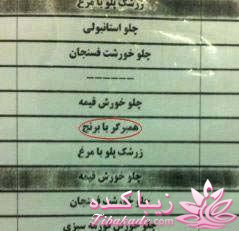 زرشک پلو با مرغ
چلو استانبولی
چلو خورشت فسنجان
------
چلو خورش قیمه
همبرگر با برنج
زرشک پلو با مرغ
چلو خورش قیمه
چلو خورشت فسنجان
سبزی
زیباکده
Zibakade.com